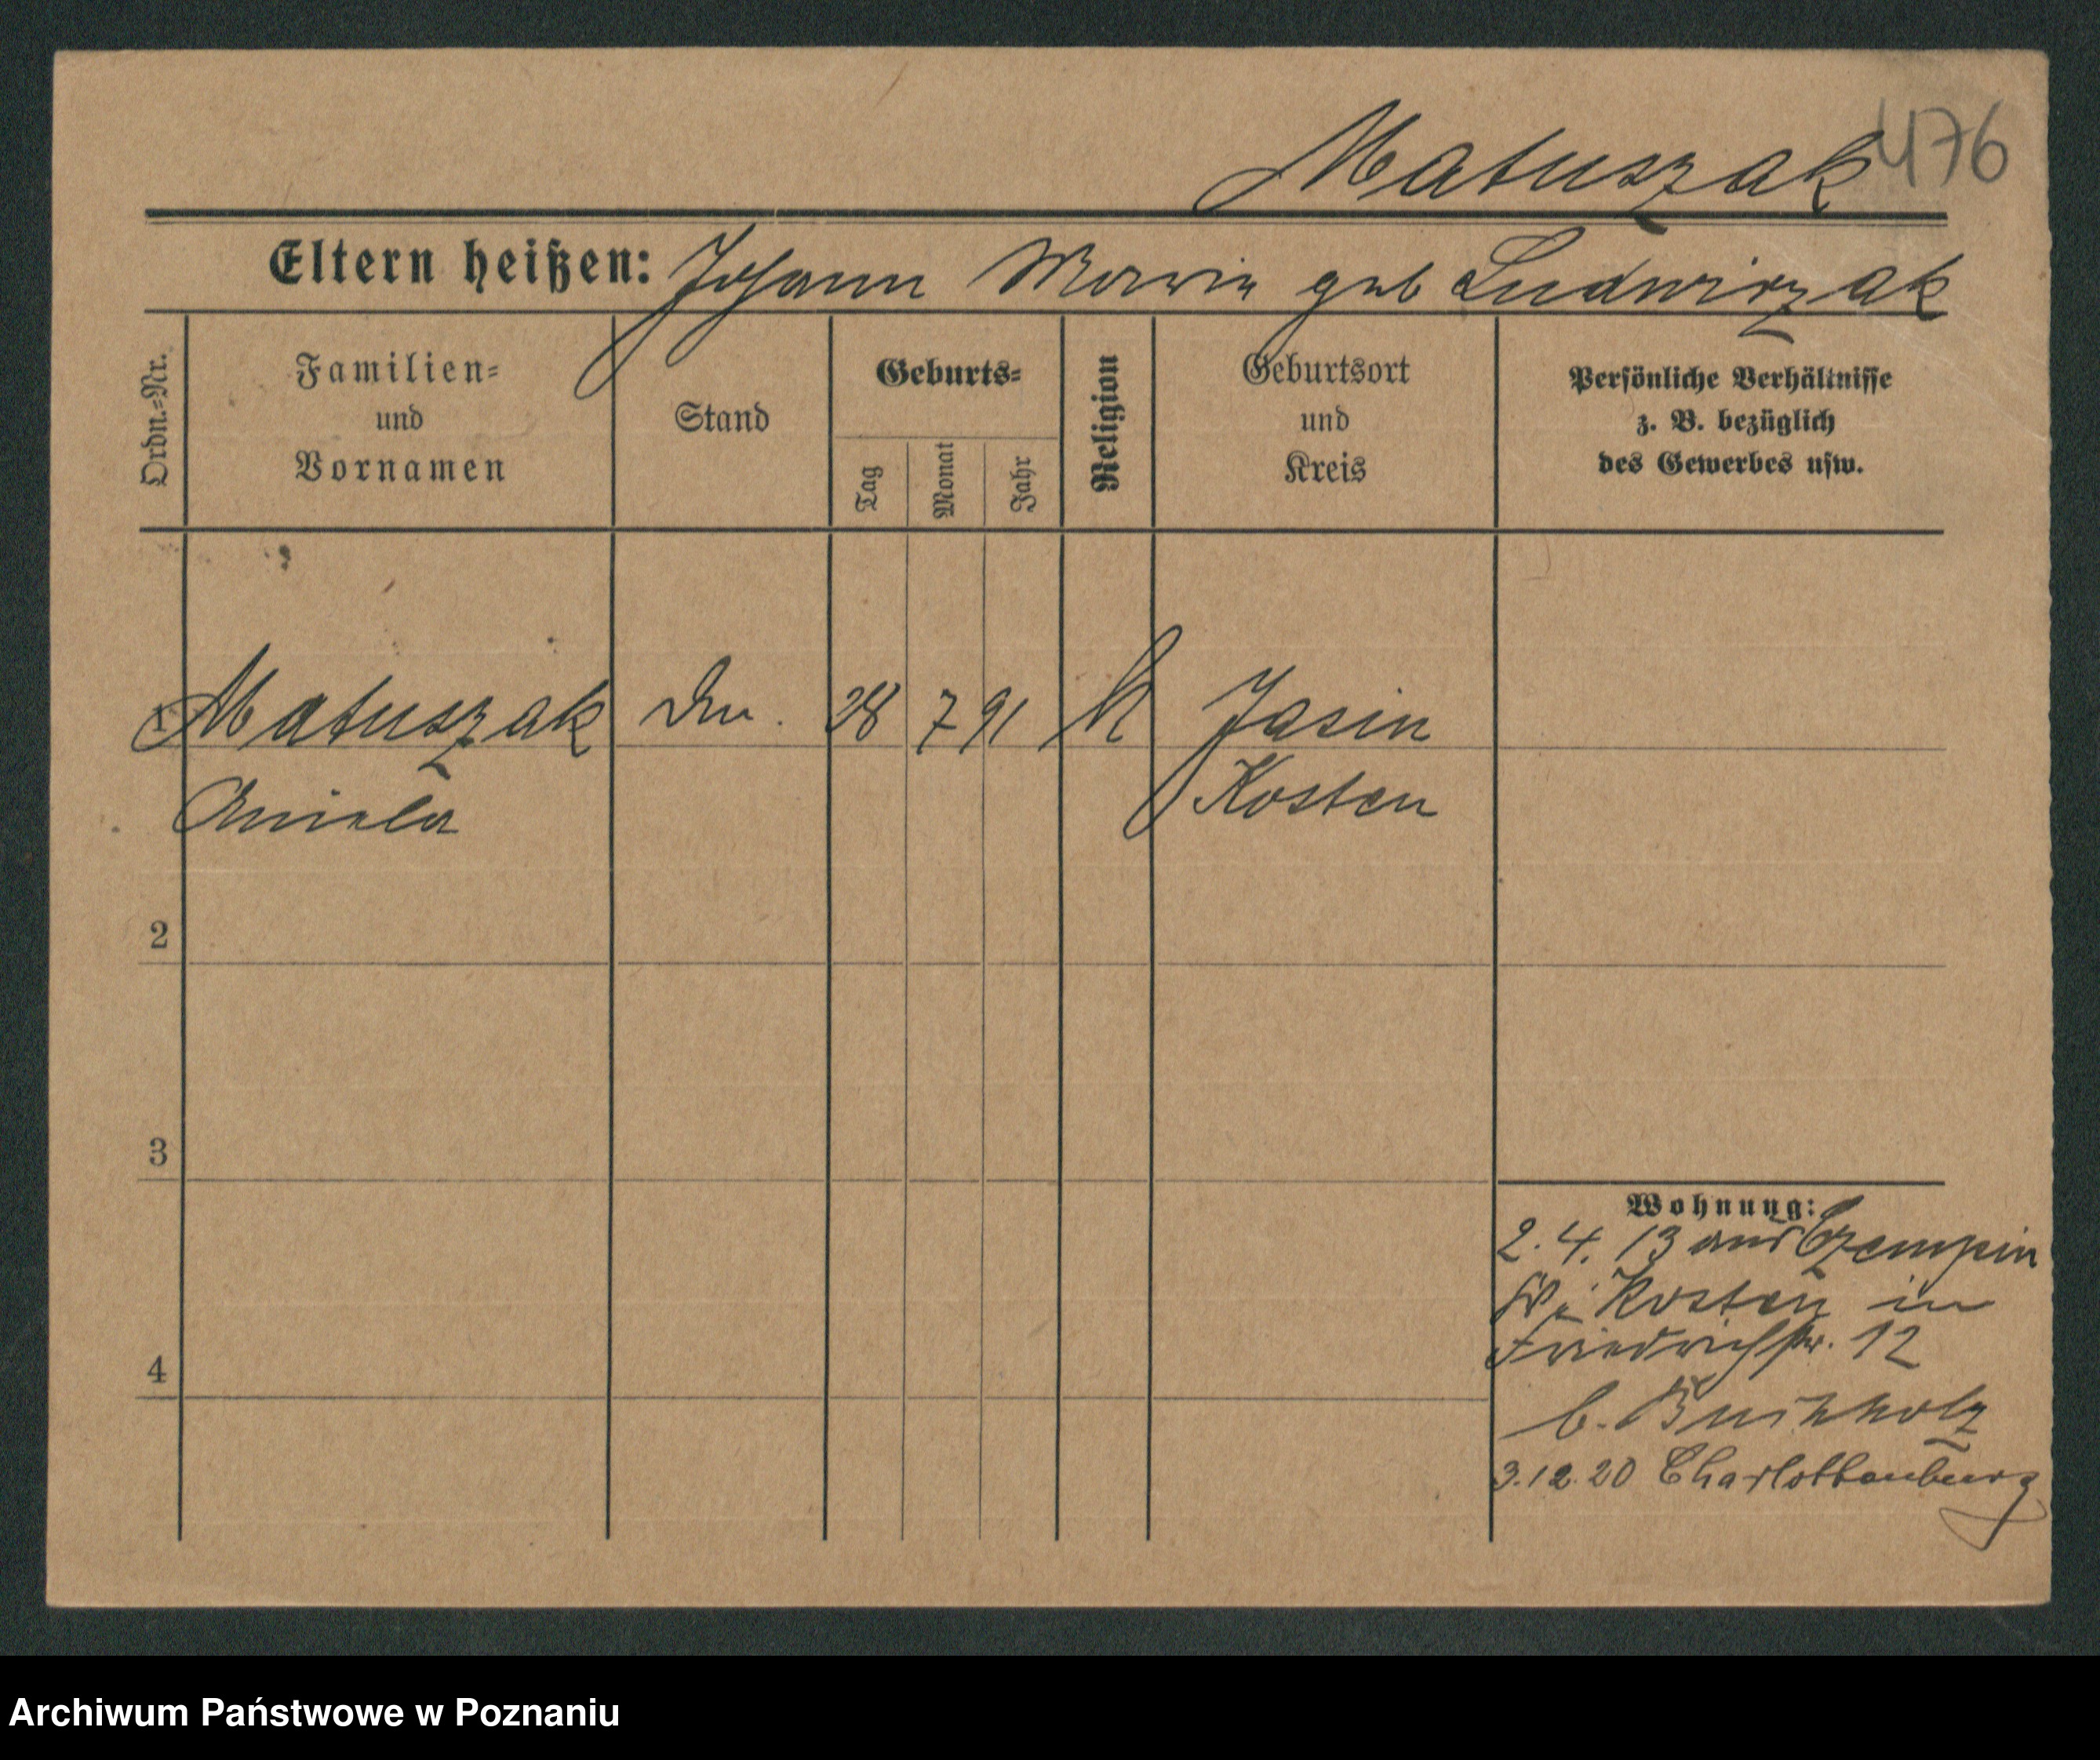 Matuszak 476
Eltern heißen: Johann Maria geb Ludwiczak
Ordn.-Nr.
Familien-
und
Vornamen
Stand
Geburts-
Tag
Monat
Jahr
Religion
Geburtsort
und
Kreis
Persönliche Verhältnisse
z. B. bezüglich
des Gewerbes usw.
1 Matuszak 28 7 91 K Jasin
Aniela Kosten
2
3
4
Wohnung:
2. 4. 13 aus Czempin
Kosten in
Friedrichstr. 12
b. Buchholz
3.12.20 Charlottenburg
Archiwum Państwowe w Poznaniu